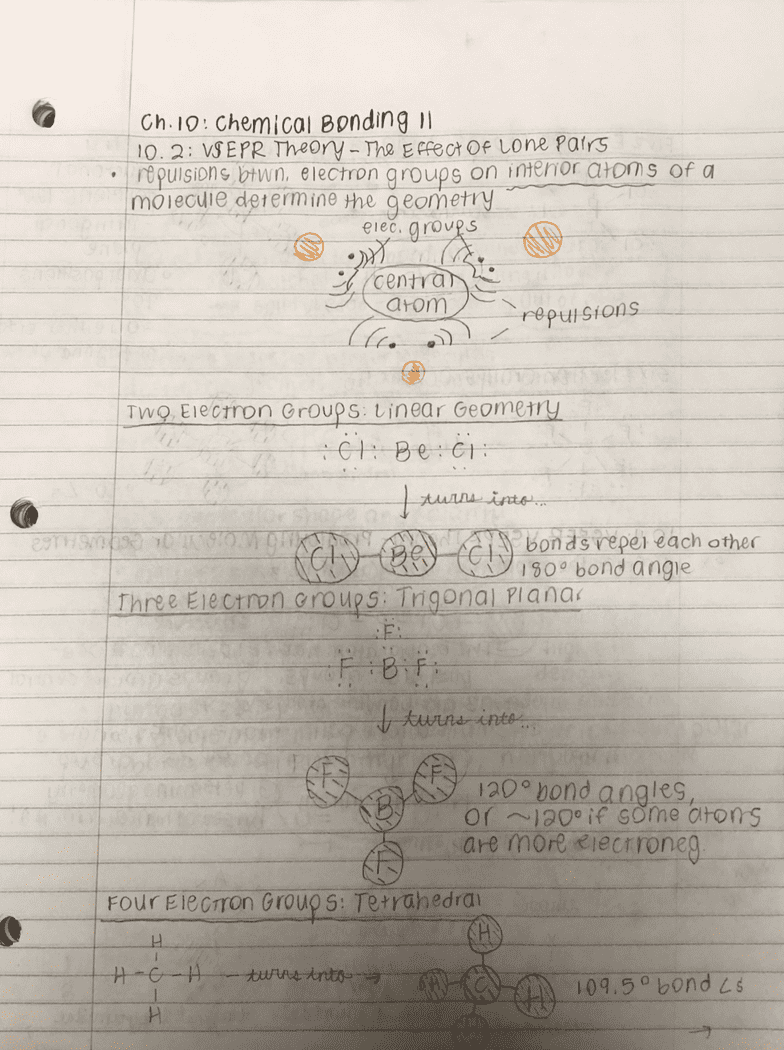 Ch.10: Chemical Bonding II
10.2: VSEPR Theory – The Effect Of Lone Pairs
• repulsions btwn. electron groups on interior atoms of a
molecule determine the geometry
elec. groups
central
atom
repulsions
Two Electron Groups: Linear Geometry
:Cl: Be :Cl:
↓ turns into...
Cl Be Cl
bonds repel each other
180° bond angle
Three Electron Groups: Trigonal Planar
:F:
:F :B: F:
↓ turns into...
F F
B
F
120° bond angles,
or ~120° if some atoms
are more electroneg.
Four Electron Groups: Tetrahedral
H
H – C – H
H
– turns into →
H
H C H
H
109.5° bond ∠s
→